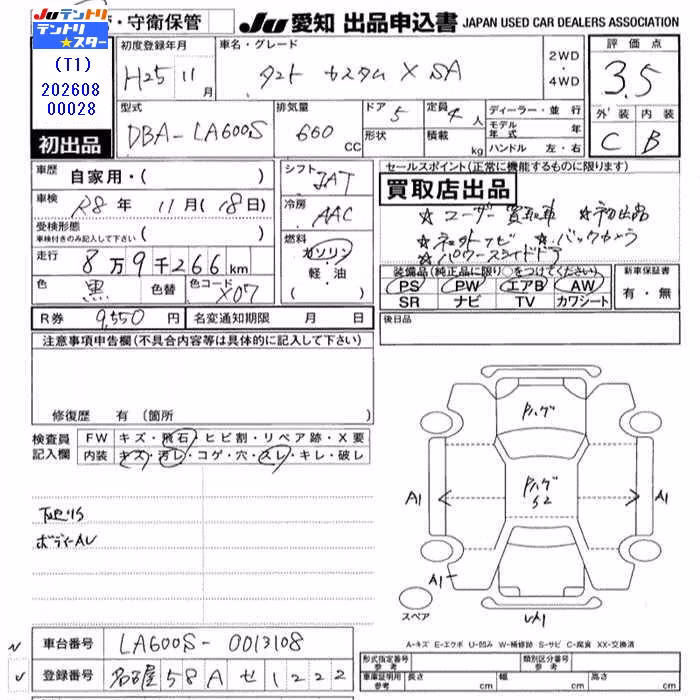 Juテントリ
テントリ★スター
・守衛保管
Ju愛知 出品申込書 JAPAN USED CAR DEALERS ASSOCIATION
(T1)
202608
00028
初出品
初度登録年月
H25 11月
車名・グレード
タント カスタム X SA
2WD
・
4WD
評価点
3.5
外装 内装
C B
型式
DBA-LA600S
排気量
660 CC
ドア 5
形状
定員 4人
積載 kg
ディーラー・並行
モデル年式 年
ハンドル 左・右
車歴 自家用・( )
車検 R8年 11月(18日)
受検形態
車検付きのみ記入して下さい ( )
走行 8万9千266km
色 黒 色替 色コード X07
シフト
IAT
冷房
AAC
燃料
ガソリン
軽・油
( )
セールスポイント(正常に機能するものに限ります)
買取店出品
☆ユーザー買取車 ☆初出品
☆ネットナビ ☆バックカメラ
☆パワースライドドア
装備品(純正品に限り○をつけてください)
PS PW エアB AW
SR ナビ TV カワシート
新車保証書
有・無
R券 9,550円 名変通知期限 月 日
後日品
注意事項申告欄(不具合内容等は具体的に記入して下さい)
修復歴 有(箇所
検査員
記入欄
FW キズ・飛石・ヒビ割・リペア跡・X要
内装 キズ・汚レ・コゲ・穴・スレ・キレ・破し
下廻りS
ボディーAU
Pハゲ
Pハゲ
S2
A1
A1
A1
スペア
UA1
A-キズ E-エクボ U-凹み W-補修跡 S-サビ C-腐食 XX-交換済
車台番号 LA600S-0013108
登録番号 名古屋 58A セ 1222
形式指定番号
参考
類別区分番号
参考
車庫証明用
参考
長さ cm 幅 cm 高さ cm